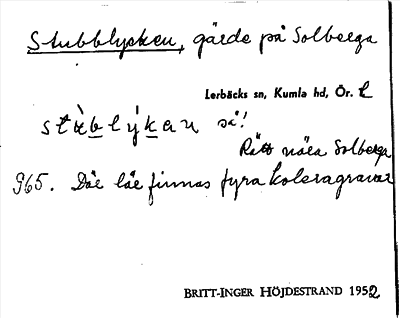 Stubblycken, gärde på Solberga
Lerbäcks sn, Kumla hd, Ör. L
stùb lýkan så!
Rätt nära Solberga
965. Där lär finnas fyra koleragravar
BRITT-INGER HÖJDESTRAND 1952